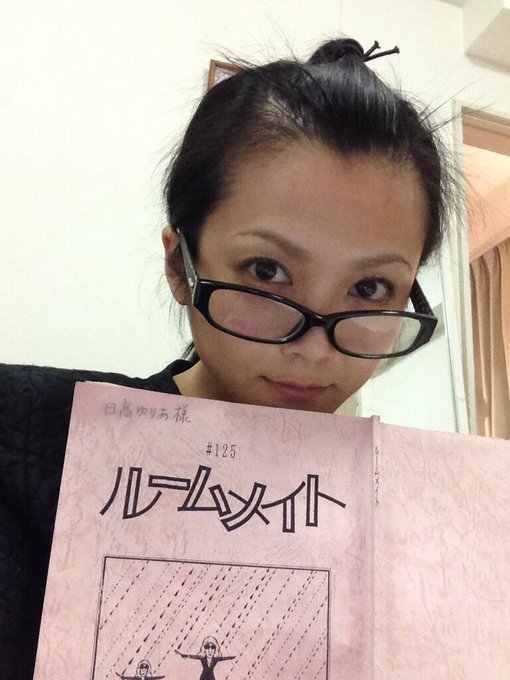 日高ゆりあ様
#125
ルームメイト
ルームメイト